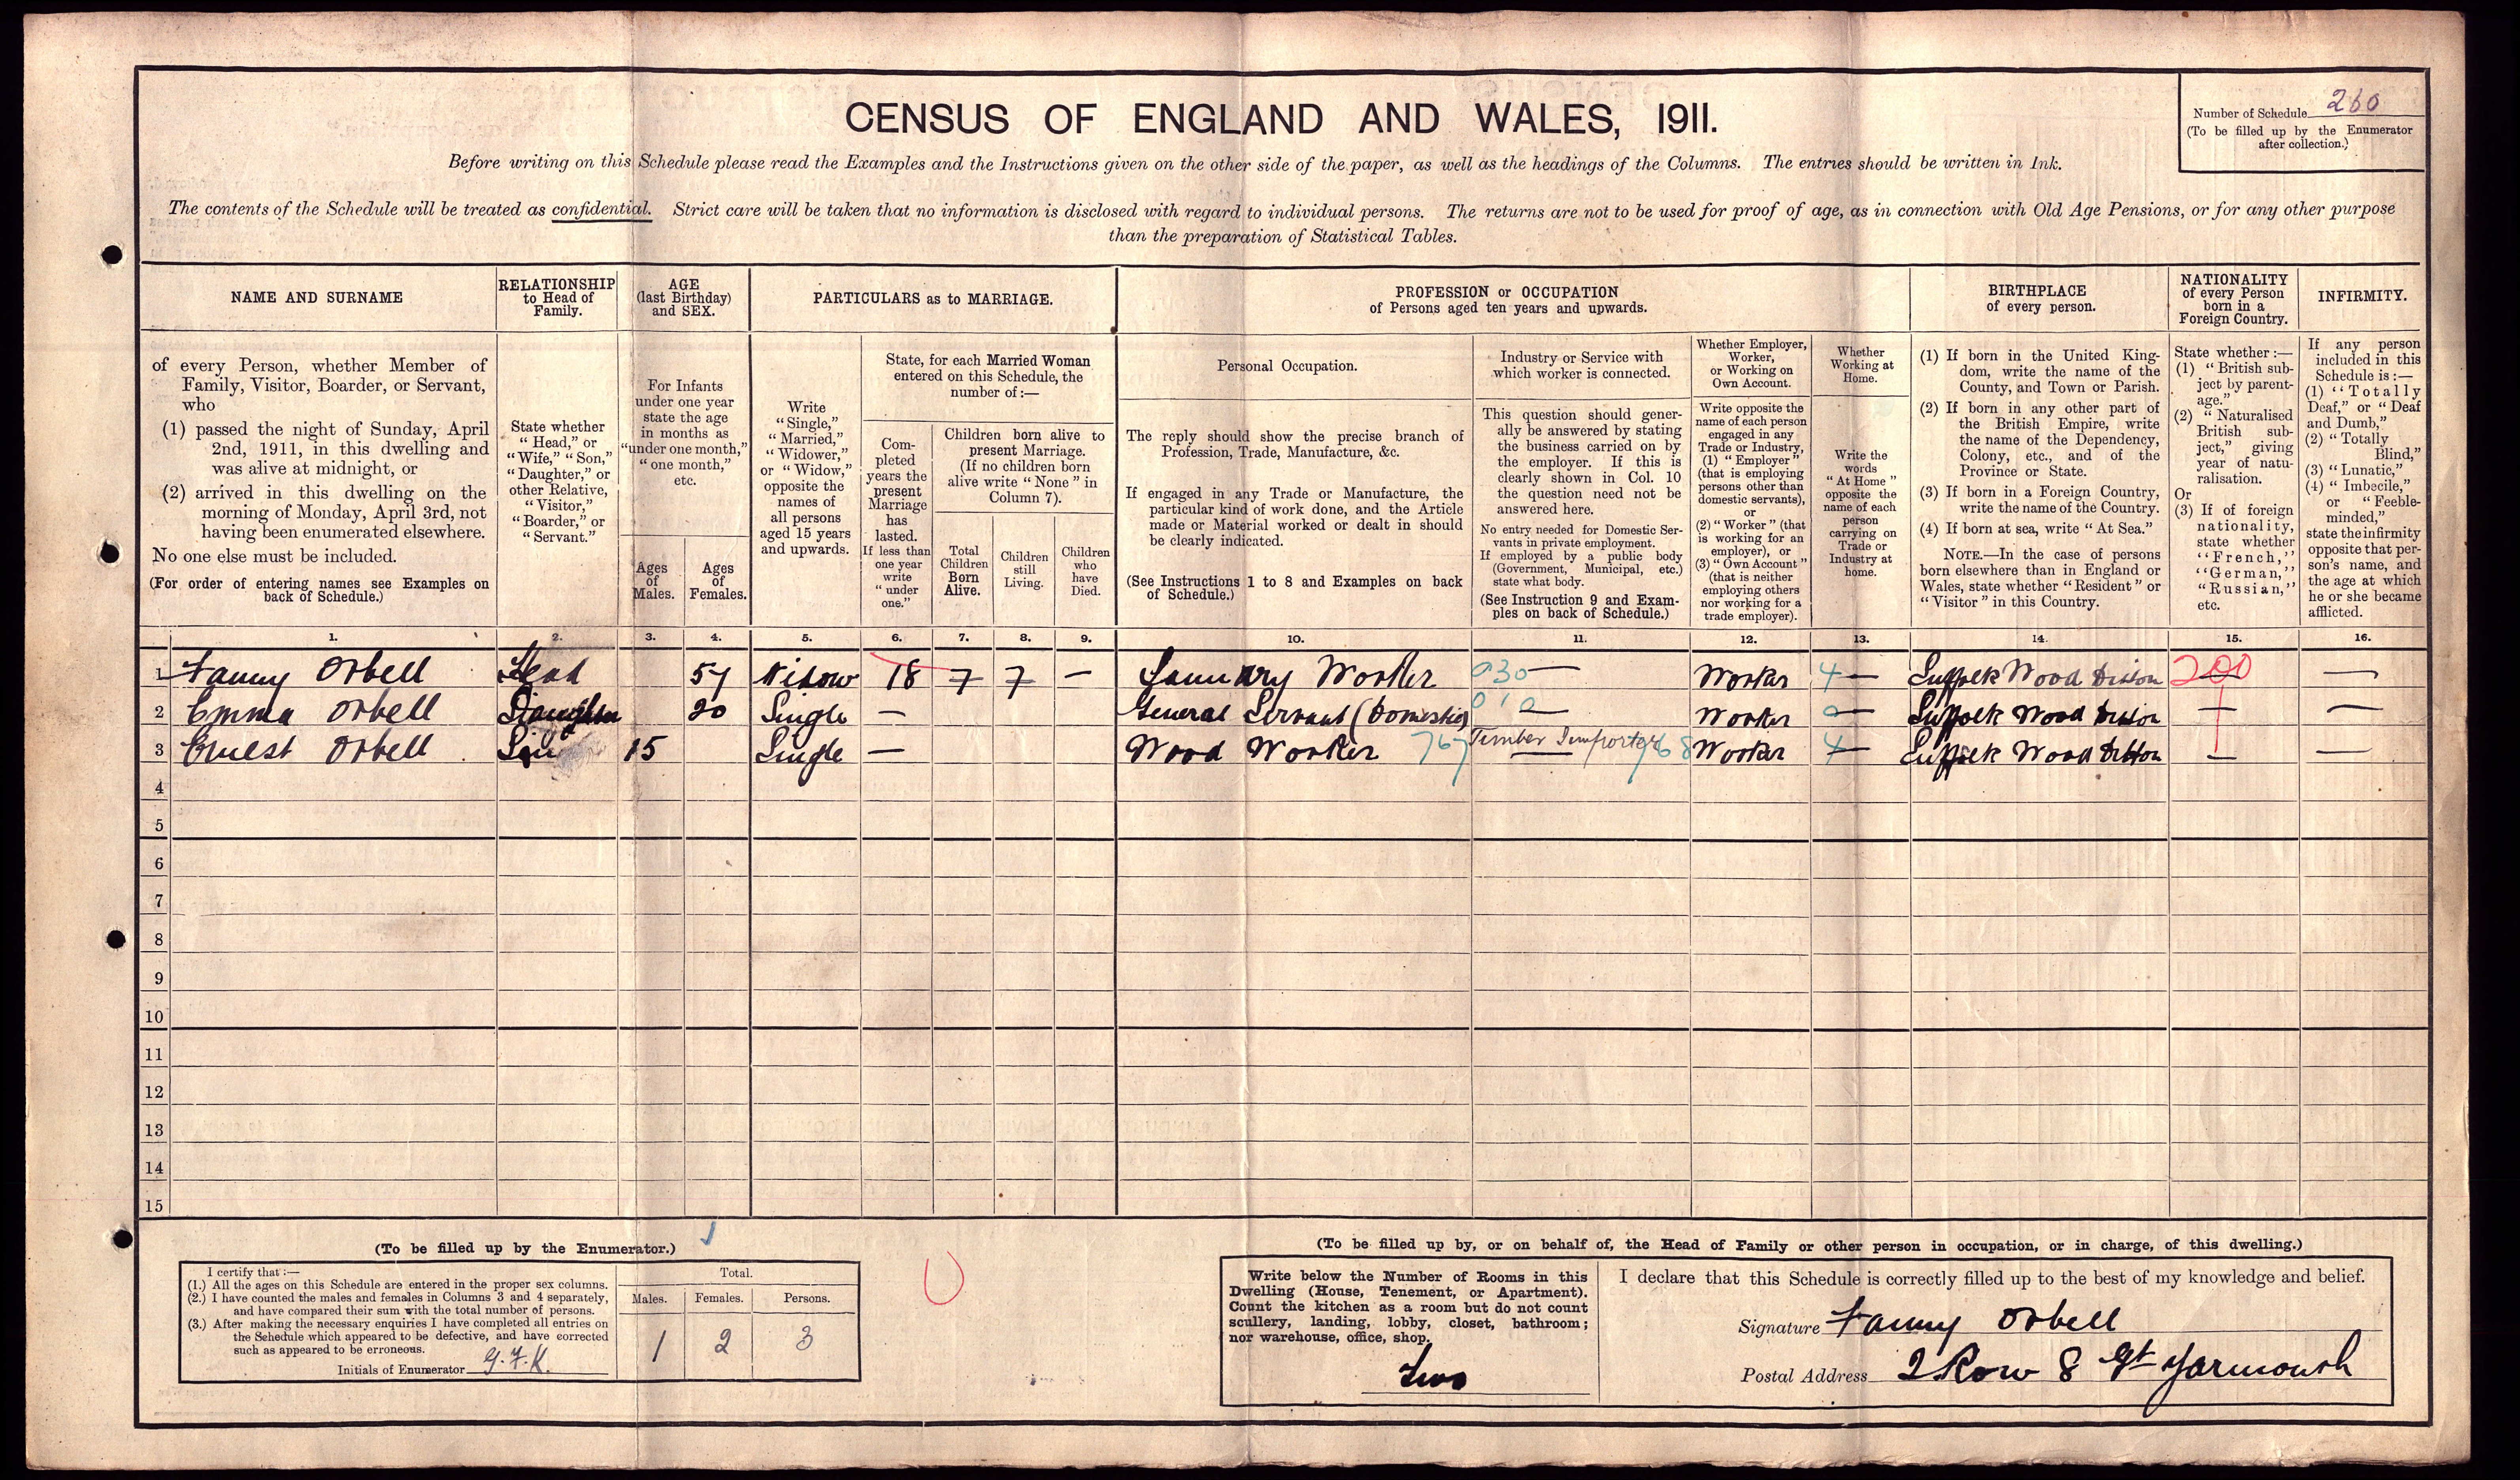 CENSUS OF ENGLAND AND WALES, 1911.
Number of Schedule 260
(To be filled up by the Enumerator
after collection.)
Before writing on this Schedule please read the Examples and the Instructions given on the other side of the paper, as well as the headings of the Columns. The entries should be written in Ink.
The contents of the Schedule will be treated as confidential. Strict care will be taken that no information is disclosed with regard to individual persons. The returns are not to be used for proof of age, as in connection with Old Age Pensions, or for any other purpose
than the preparation of Statistical Tables.
NAME AND SURNAME
of every Person, whether Member of
Family, Visitor, Boarder, or Servant,
who
(1) passed the night of Sunday, April
2nd, 1911, in this dwelling and
was alive at midnight, or
(2) arrived in this dwelling on the
morning of Monday, April 3rd, not
having been enumerated elsewhere.
No one else must be included.
(For order of entering names see Examples on
back of Schedule.)
RELATIONSHIP
to Head of
Family.
State whether
"Head," or
"Wife," "Son,"
"Daughter," or
other Relative,
"Visitor,"
"Boarder," or
"Servant."
AGE
(last Birthday)
and SEX.
For Infants
under one year
state the age
in months as
"under one month,"
"one month,"
etc.
Ages
of
Males.
Ages
of
Females.
PARTICULARS as to MARRIAGE.
Write
"Single,"
"Married,"
"Widower,"
or "Widow,"
opposite the
names of
all persons
aged 15 years
and upwards.
State, for each Married Woman
entered on this Schedule, the
number of:—
Com-
pleted
years the
present
Marriage
has
lasted.
If less than
one year
write
"under
one."
Children born alive to
present Marriage.
(If no children born
alive write "None" in
Column 7).
Total
Children
Born
Alive.
Children
still
Living.
Children
who
have
Died.
PROFESSION or OCCUPATION
of Persons aged ten years and upwards.
Personal Occupation.
The reply should show the precise branch of
Profession, Trade, Manufacture, &c.
If engaged in any Trade or Manufacture, the
particular kind of work done, and the Article
made or Material worked or dealt in should
be clearly indicated.
(See Instructions 1 to 8 and Examples on back
of Schedule.)
Industry or Service with
which worker is connected.
This question should gener-
ally be answered by stating
the business carried on by
the employer. If this is
clearly shown in Col. 10
the question need not be
answered here.
No entry needed for Domestic Ser-
vants in private employment.
If employed by a public body
(Government, Municipal, etc.)
state what body.
(See Instruction 9 and Exam-
ples on back of Schedule.)
Whether Employer,
Worker,
or Working on
Own Account.
Write opposite the
name of each person
engaged in any
Trade or Industry,
(1) "Employer"
(that is employing
persons other than
domestic servants),
or
(2) "Worker" (that
is working for an
employer), or
(3) "Own Account"
(that is neither
employing others
nor working for a
trade employer).
Whether
Working at
Home.
Write the
words
"At Home"
opposite the
name of each
person
carrying on
Trade or
Industry at
home.
BIRTHPLACE
of every person.
(1) If born in the United King-
dom, write the name of the
County, and Town or Parish.
(2) If born in any other part of
the British Empire, write
the name of the Dependency,
Colony, etc., and of the
Province or State.
(3) If born in a Foreign Country,
write the name of the Country.
(4) If born at sea, write "At Sea."
NOTE.—In the case of persons
born elsewhere than in England or
Wales, state whether "Resident" or
"Visitor" in this Country.
NATIONALITY
of every Person
born in a
Foreign Country.
State whether:—
(1) "British sub-
ject by parent-
age."
(2) "Naturalised
British sub-
ject," giving
year of natu-
ralisation.
Or
(3) If of foreign
nationality,
state whether
"French,"
"German,"
"Russian,"
etc.
INFIRMITY.
If any person
included in this
Schedule is:—
(1) "Totally
Deaf," or "Deaf
and Dumb,"
(2) "Totally
Blind,"
(3) "Lunatic,"
(4) "Imbecile,"
or "Feeble-
minded,"
state the infirmity
opposite that per-
son's name, and
the age at which
he or she became
afflicted.
1. 2. 3. 4. 5. 6. 7. 8. 9. 10. 11. 12. 13. 14. 15. 16.
1 Fanny Orbell Head 57 Widow 18 7 7 — Launary Worker 030 — Worker 4 — Suffolk Wood Ditton 200 — —
2 Emma Orbell Daughter 20 Single — General Servant (Domestic) 010 — Worker 0 — Suffolk Wood Ditton — —
3 Ernest Orbell Son 15 Single — Wood Worker 767 Timber Importer 768 Worker 4 — Suffolk Wood Ditton — —
4
5
6
7
8
9
10
11
12
13
14
15
(To be filled up by the Enumerator.)
I certify that:—
(1.) All the ages on this Schedule are entered in the proper sex columns.
(2.) I have counted the males and females in Columns 3 and 4 separately,
and have compared their sum with the total number of persons.
(3.) After making the necessary enquiries I have completed all entries on
the Schedule which appeared to be defective, and have corrected
such as appeared to be erroneous.
Initials of Enumerator G.F.K.
Total.
Males. Females. Persons.
1 2 3
(To be filled up by, or on behalf of, the Head of Family or other person in occupation, or in charge, of this dwelling.)
Write below the Number of Rooms in this
Dwelling (House, Tenement, or Apartment).
Count the kitchen as a room but do not count
scullery, landing, lobby, closet, bathroom;
nor warehouse, office, shop.
Two
I declare that this Schedule is correctly filled up to the best of my knowledge and belief.
Signature Fanny Orbell
Postal Address 2 Row 8 Gt Yarmouth